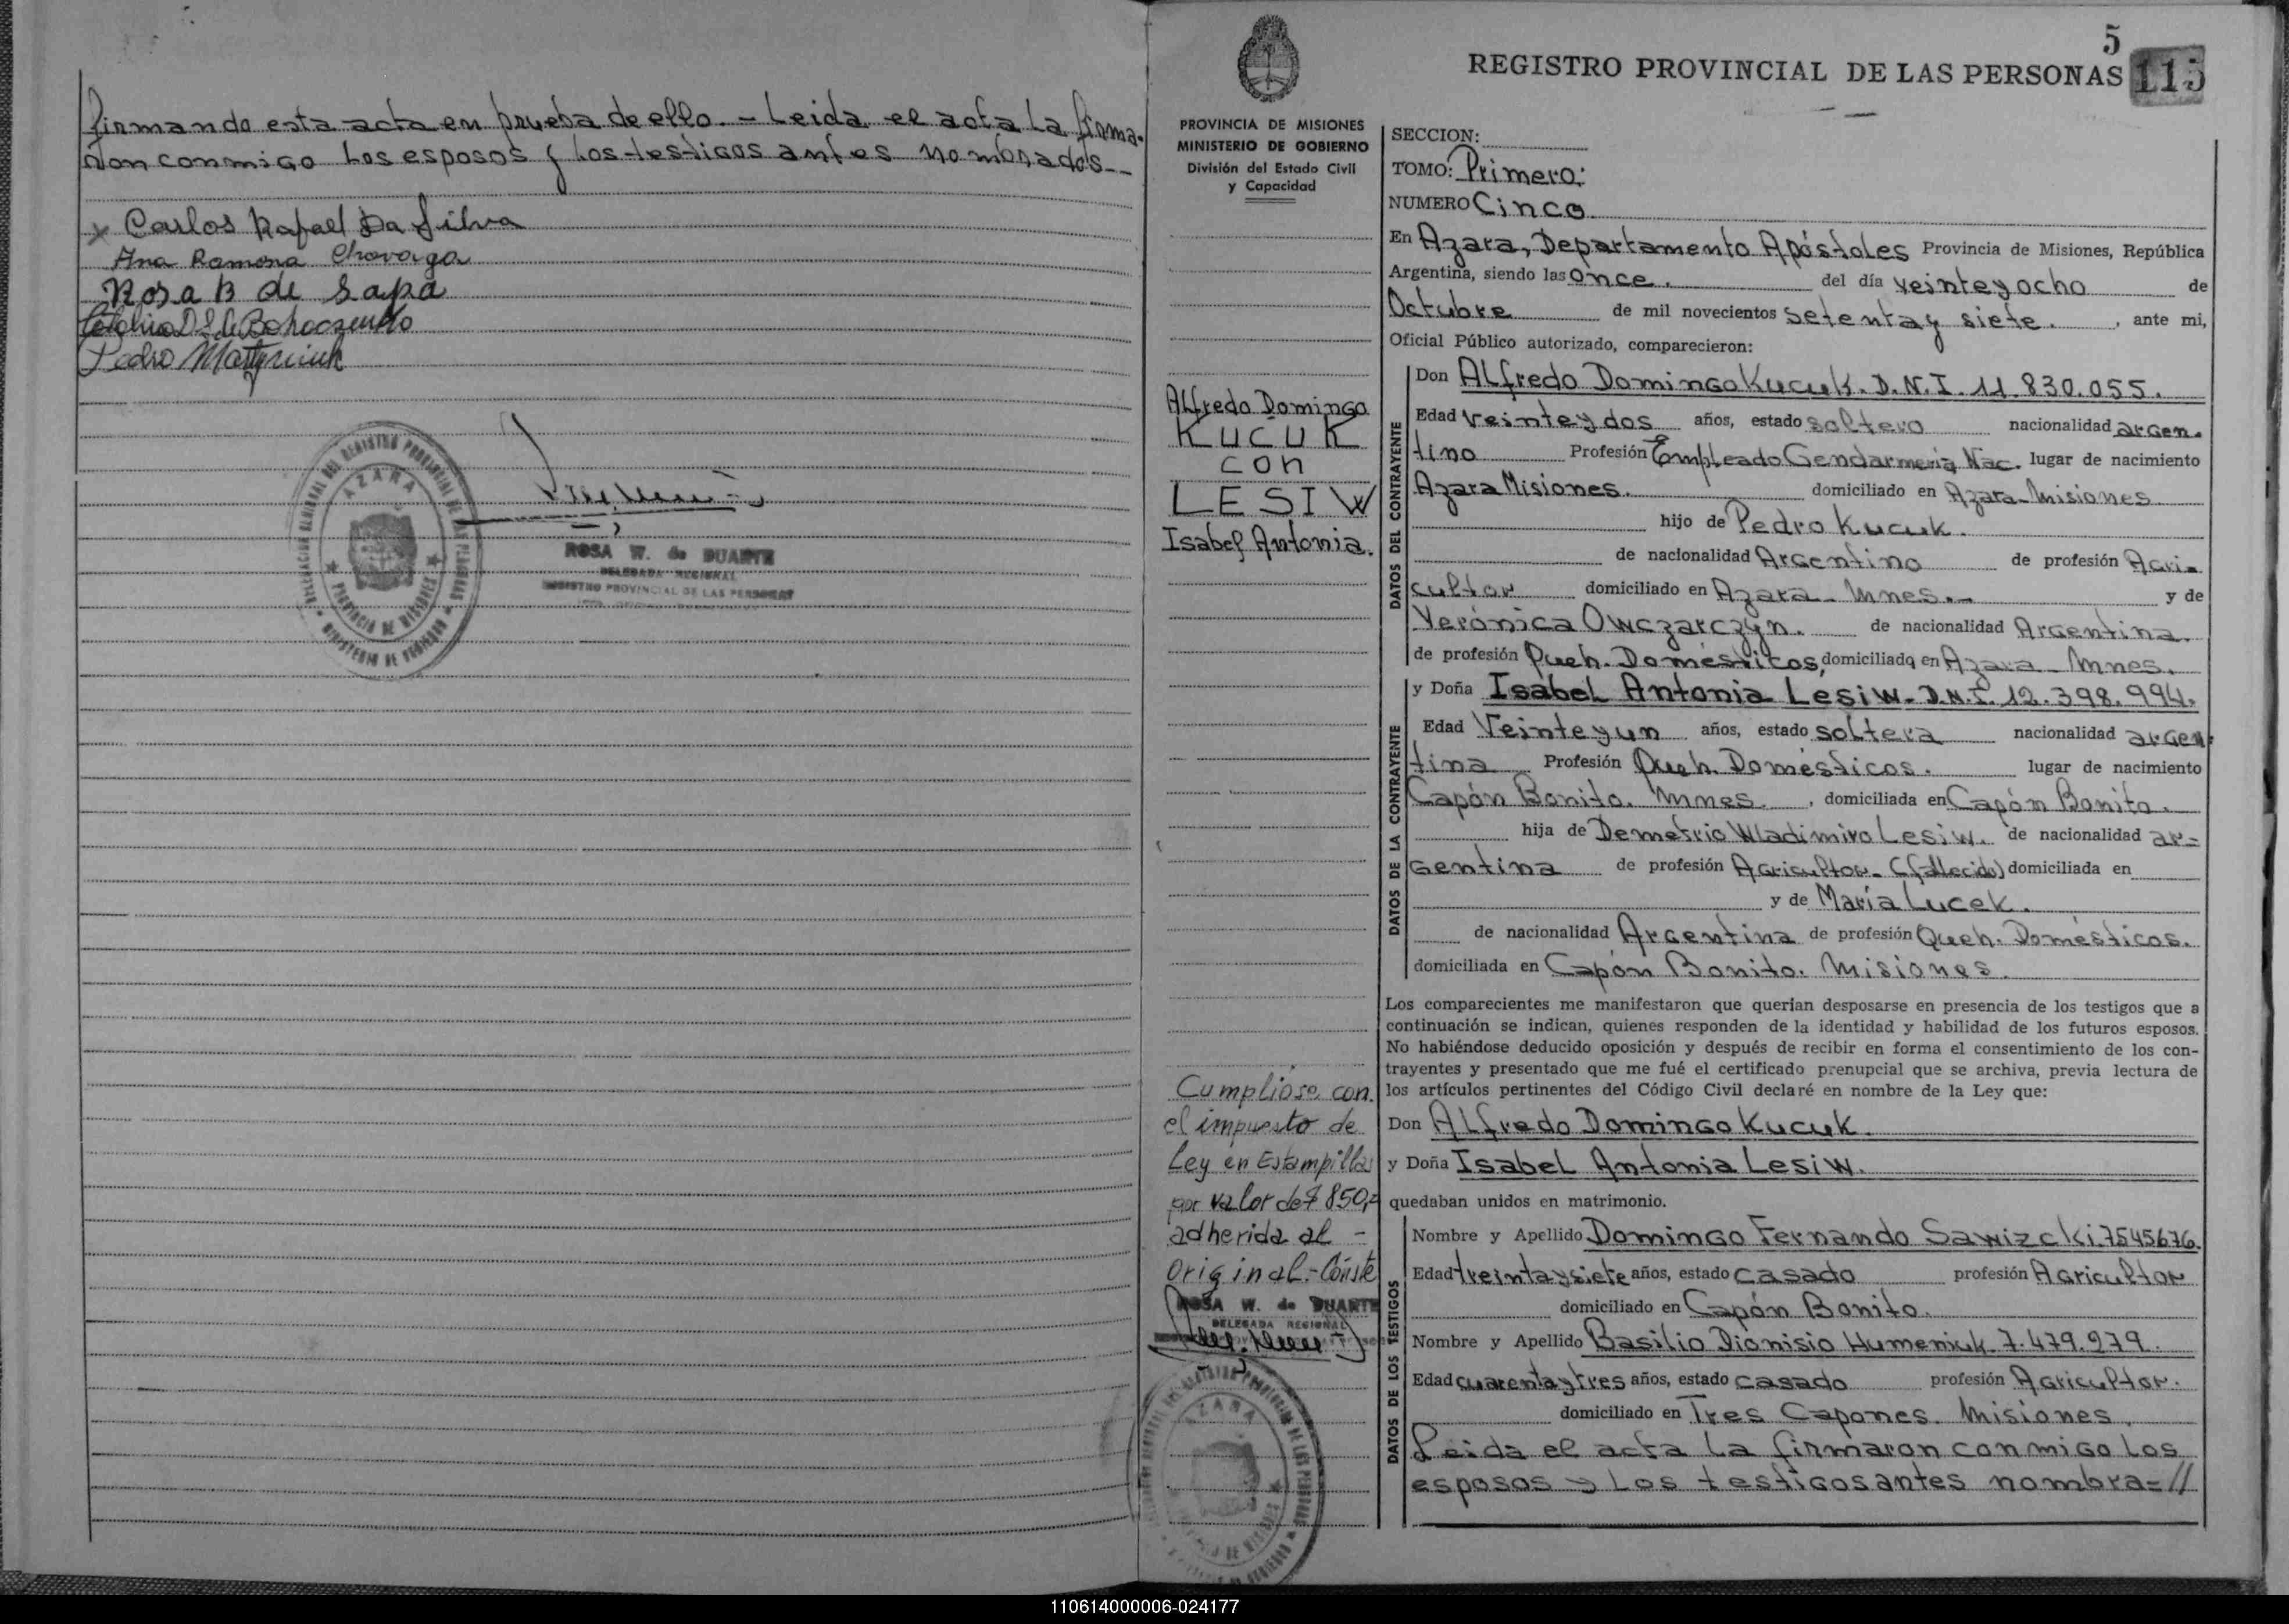 firmando esta acta en prueba de ello. - Leida el acta la firma-
ron conmigo los esposos y los testigos antes nombrados--
x Carlos Rafael Da Silva
Ana Ramona
Rosa B de Sapa

Pedro Martyniuk
AZARA
PROVINCIA DE MISIONES
ROSA W. de DUARTE
DELEGADA REGIONAL
REGISTRO PROVINCIAL DE LAS PERSONAS
5
REGISTRO PROVINCIAL DE LAS PERSONAS 115
PROVINCIA DE MISIONES
MINISTERIO DE GOBIERNO
División del Estado Civil
y Capacidad
Alfredo Domingo
KUCUK
con
LESIW
Isabel Antonia.
Cumpliose con
el impuesto de
Ley en Estampillas
por valor de $ 850,=
adherida al -
original.- Cónste
ROSA W. de DUARTE
DELEGADA REGIONAL
AZARA
SECCION:
TOMO: Primero:
NUMERO Cinco
En Azara, Departamento Apóstoles Provincia de Misiones, República
Argentina, siendo las once. del día veinteyocho de
Octubre de mil novecientos setentay siete. , ante mi,
Oficial Público autorizado, comparecieron:
DATOS DEL CONTRAYENTE
Don Alfredo Domingo Kucuk. D.N.I. 11.830.055.
Edad Veinteydos años, estado soltero nacionalidad argen-
tino Profesión Empleado Gendarmería Nac. lugar de nacimiento
Azara Misiones. domiciliado en Azara-Misiones
hijo de Pedro Kucuk.
de nacionalidad Argentino de profesión Agri-
cultor domiciliado en Azara - Mnes.- y de
Verónica Owczarczyn. de nacionalidad Argentina.
de profesión Queh. Domésticos, domiciliada en Azara - Mnes.
DATOS DE LA CONTRAYENTE
y Doña Isabel Antonia Lesiw - D.N.I. 12.398.994.
Edad Veinteyun años, estado soltera nacionalidad argen-
tina Profesión Queh. Domésticos. lugar de nacimiento
Capón Bonito. Mnes. , domiciliada en Capón Bonito.
hija de Demetrio Wladimiro Lesiw. de nacionalidad ar=
gentina de profesión Agricultor. (fallecido) domiciliada en
y de María Lucek.
de nacionalidad Argentina de profesión Queh. Domésticos.
domiciliada en Capón Bonito. Misiones.
Los comparecientes me manifestaron que querían desposarse en presencia de los testigos que a
continuación se indican, quienes responden de la identidad y habilidad de los futuros esposos.
No habiéndose deducido oposición y después de recibir en forma el consentimiento de los con-
trayentes y presentado que me fué el certificado prenupcial que se archiva, previa lectura de
los artículos pertinentes del Código Civil declaré en nombre de la Ley que:
Don Alfredo Domingo Kucuk.
y Doña Isabel Antonia Lesiw.
quedaban unidos en matrimonio.
DATOS DE LOS TESTIGOS
Nombre y Apellido Domingo Fernando Sawizcki. 7545676.
Edad treintaysiete años, estado casado profesión Agricultor
domiciliado en Capón Bonito.
Nombre y Apellido Basilio Dionisio Humeniuk 7.479.279.
Edad cuarentaytres años, estado casado profesión Agricultor.
domiciliado en Tres Capones. Misiones.
Leida el acta la firmaron conmigo los
esposos y los testigos antes nombra=//
110614000006-024177